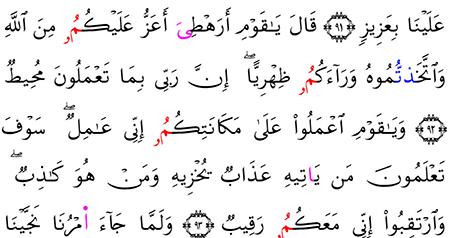 عَلَيْنَا بِعَزِيزٍ ۝٩١ قَالَ يَٰقَوْمِ أَرَهْطِيَ أَعَزُّ عَلَيْكُمُۥ مِنَ ٱللَّهِ
وَٱتَّخَذتُّمُوهُ وَرَآءَكُمُۥ ظِهْرِيًّاۖ إِنَّ رَبِّى بِمَا تَعْمَلُونَ مُحِيطٌ
۝٩٢ وَيَٰقَوْمِ ٱعْمَلُوا۟ عَلَىٰ مَكَانَتِكُمُۥ إِنِّى عَٰمِلٌۖ سَوْفَ
تَعْلَمُونَ مَن يَاتِيهِ عَذَابٌ يُخْزِيهِ وَمَنْ هُوَ كَٰذِبٌۖ
وَٱرْتَقِبُوٓا۟ إِنِّى مَعَكُمُۥ رَقِيبٌ ۝٩٣ وَلَمَّا جَآءَ امْرُنَا نَجَّيْنَا